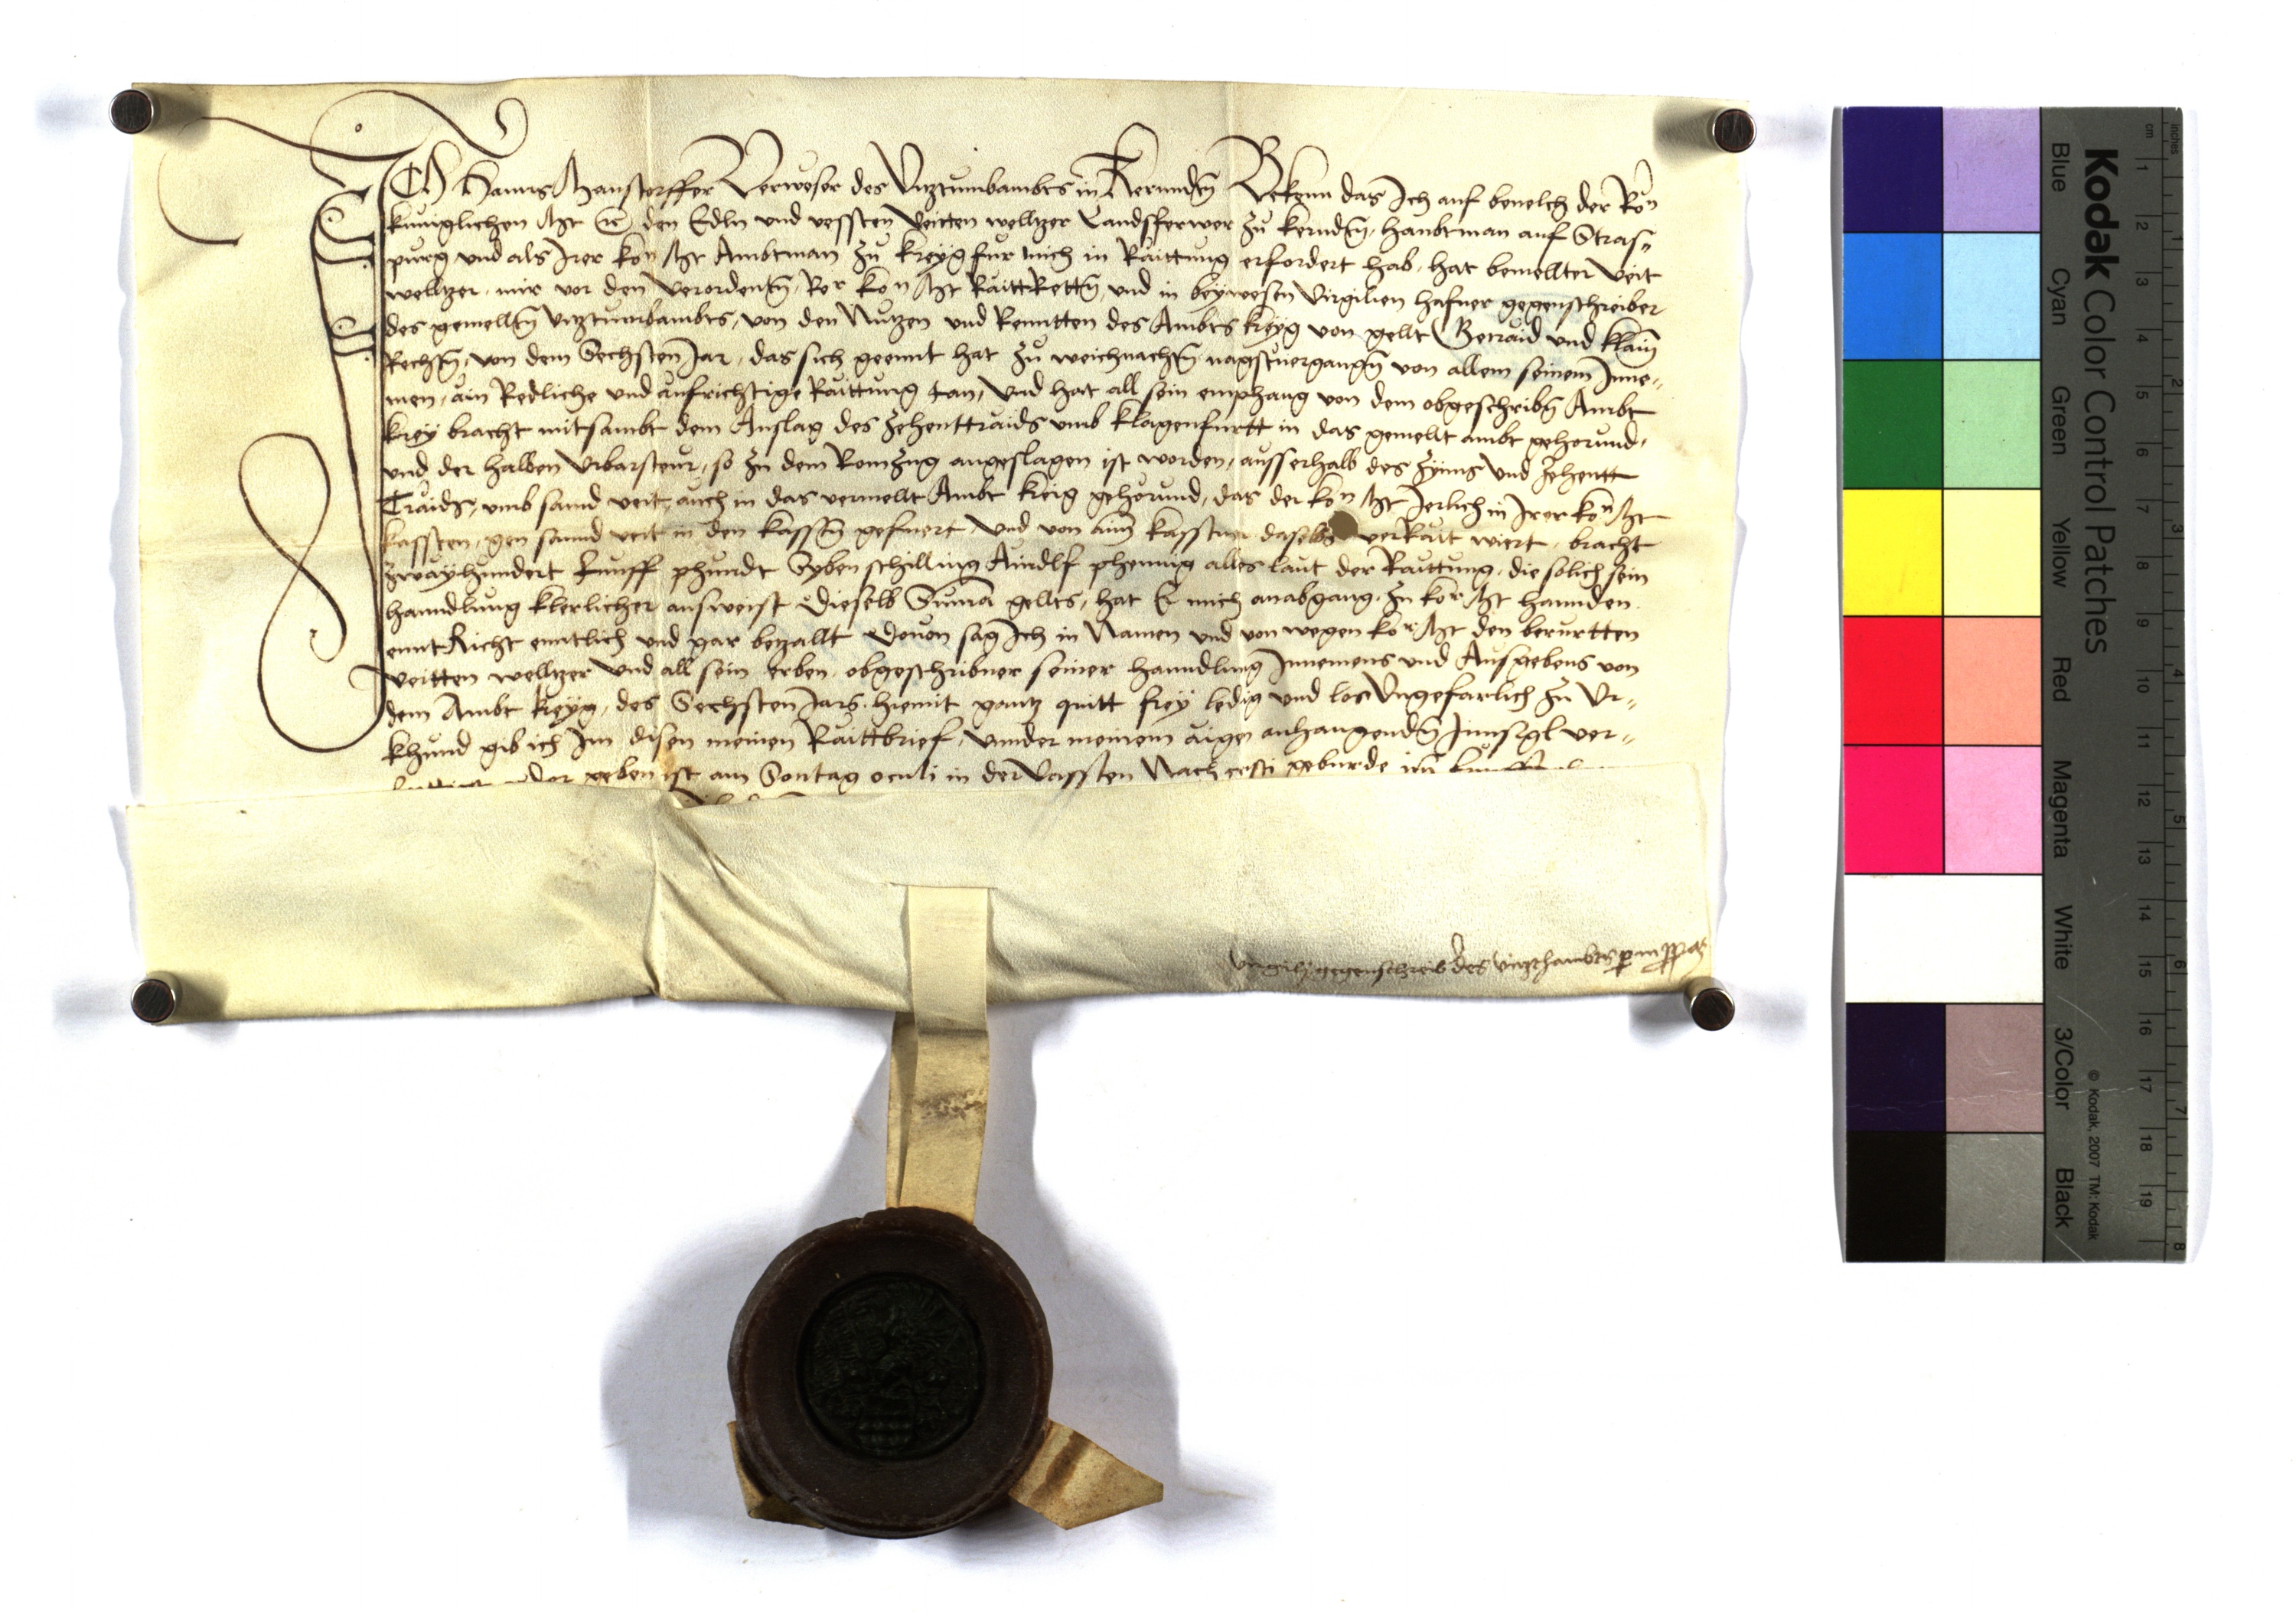 ICh Hanns Manstorffer Verweser des Vitztumbambts in Kernndn̄ Bekenn das Ich auf beuelch der Ron
kuniglichen Mt ꝛc den Edln und vessten Veitten welltzer Landsferweser zu kerndn̄, haubtman auf Stras„
purg und als Irer kon Mt Ambtman zu kreyg fur mich in Raittung erfordert hab, hat bemellter Veit
welltzer, mir vor den verordentn̄, Ror kon Mt RaittRettn̄, und in beywesen Virgilien hafner gegenschreiber
des gemelltn̄ vitztumbambts, von den Nutzen und Renntten des Ambts kreyg von gellt Getraid und klain
Rechtn̄, von dem Sechsten Jar, das sich geennt hat zu weichnachtn̄ nagstuergangn̄ von allem seinem Inne„
men, ain Redliche und aufrichtige Raittung tan, Und hat all sein emphang von dem obgeschribn̄ Ambt
krey bracht mitsambt dem Anslag des zehenttraids umb klagenfurtt in das gemellt ambt gehorund,
und der halben Urbarsteur, so zu dem Romzug angeslagen ist worden, ausserhalb des zynns und zehentt
Traids, umb sannd veit, auch in das vermellt Ambt kreig gehorund, das der kon Mt Jerlich in Irer kon Mt
kassten, gen sannd veit in den kasstn̄ gefuert, Und von aim̄ kasstner daselbs verRait wiert, bracht
zwayhundert funff phundt Syben schilling Aindlf phennig alles laut der Raittung, die solich sein
hanndlung klerlicher ausweist Dieselb Suma gellts, hat Er mich anabgang, zu kor Mt hannden
enntRicht enntlich und gar betzallt Douon sag Ich in Namen und von wegen kor Mt den berurtten
Veitten welltzer Und all sein erben, obgeschribner seiner hanndlung Innemens und Ausgebens von
dem Ambt kreyg, des Sechsten Jars, hiemit gantz quitt frey ledig und los Ungefarlich zu Ur„
khund gib ich Im disen meinen Raittbrief, unnder meinem aigen anhangendn̄ Innsigl ver„
der geben ist am Sontag oculi in der Vassten Nach cristi geburde im
virgilj gegenschreib des vitzthambts
Kodak Color Control Patches
Blue Cyan Green Yellow Red Magenta White 3/Color Black
© Kodak, 2007 TM: Kodak
cm 1 2 3 4 5 6 7 8 9 10 11 12 13 14 15 16 17 18 19
inches 1 2 3 4 5 6 7 8